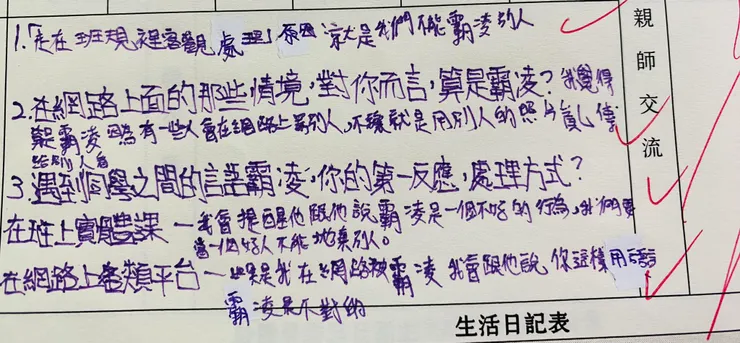 1.「走在班規裡客觀處理」原因就是我們不能霸凌別人
2.在網路上面的那些情境,對你而言,算是霸凌?我覺得
是霸凌因為有一些人會在網路上罵別人,不然就是用別人的照片亂傳
給別人看
3.遇到同學之間的言語霸凌,你的第一反應,處理方式?
在班上實體課—我會提醒他跟他說霸凌是一個不好的行為,我們要
當一個好人不能 別人。
在網路上各類平台—如果是我在網路被霸凌 我會跟他說 你這樣用話語
霸凌是不對的
親師交流
生活日記表